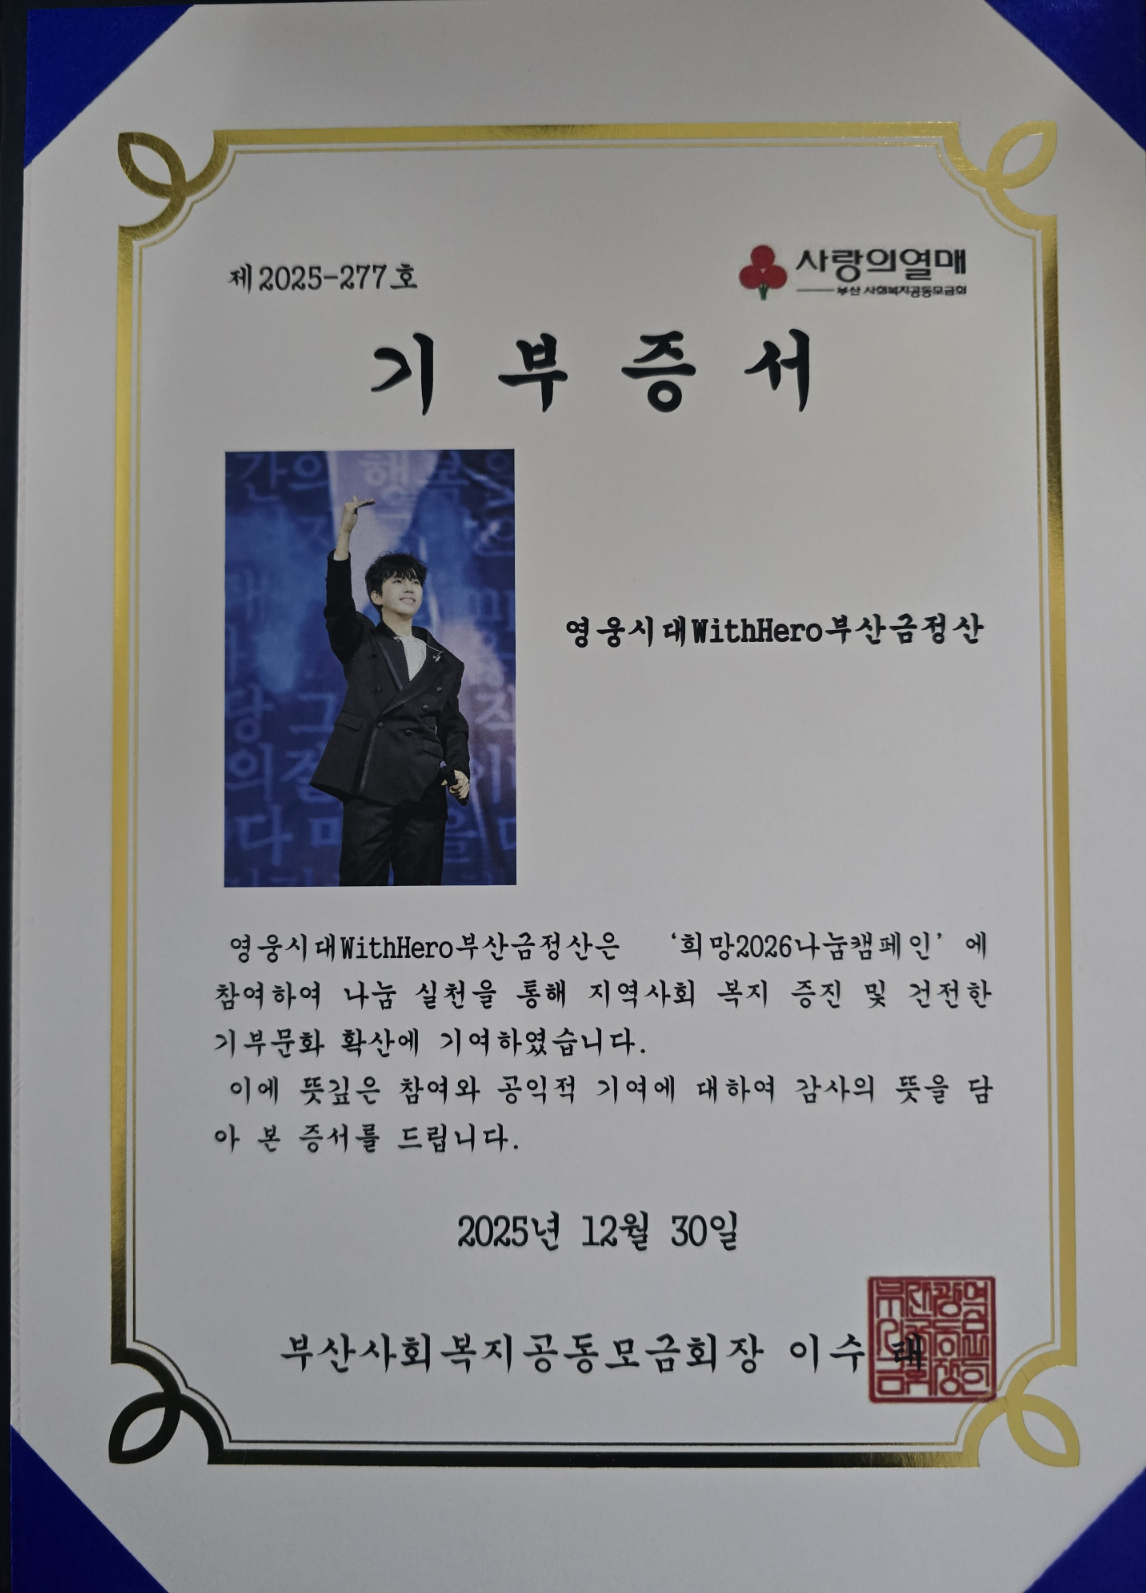 제2025-277호
사랑의열매
부산 사회복지공동모금회
기부증서
간의 행복을
영웅시대WithHero부산금정산
당 그
의 절
영웅시대WithHero부산금정산은 ‘희망2026나눔캠페인’ 에
참여하여 나눔 실천을 통해 지역사회 복지 증진 및 건전한
기부문화 확산에 기여하였습니다.
이에 뜻깊은 참여와 공익적 기여에 대하여 감사의 뜻을 담
아 본 증서를 드립니다.
2025년 12월 30일
부산사회복지공동모금회장 이수태